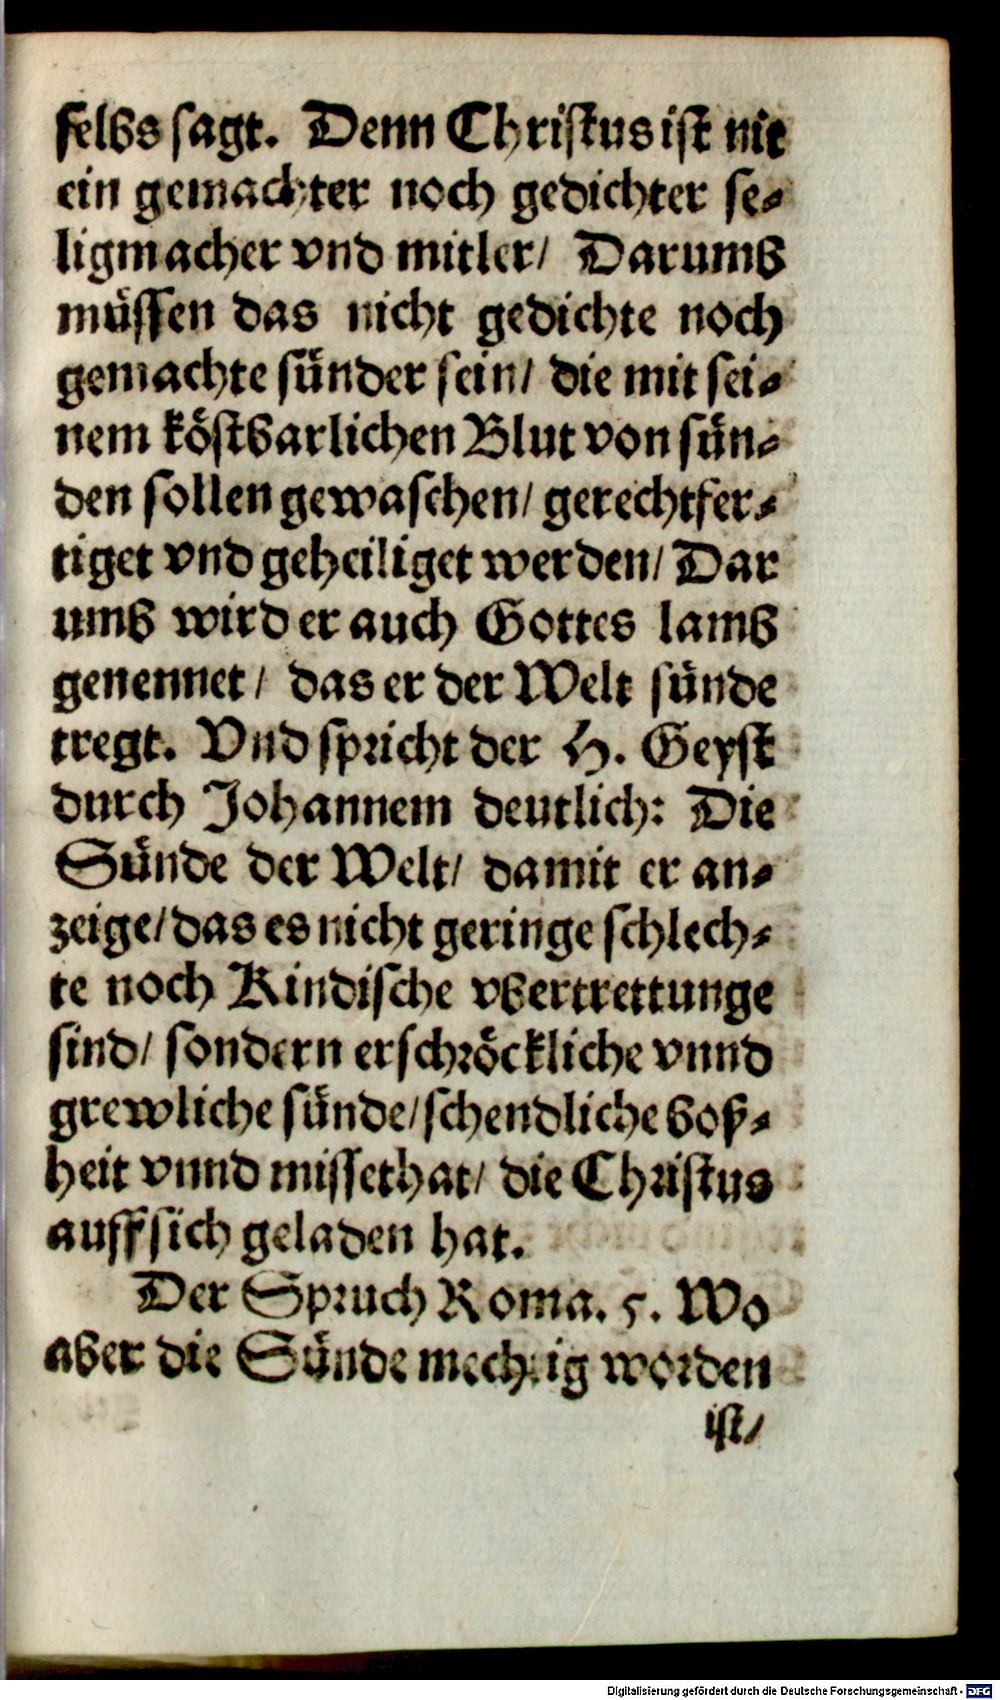 selbs sagt. Denn Christus ist nit
ein gemachter noch gedichter se-
ligmacher vnd mitler/ Darumb
müssen das nicht gedichte noch
gemachte sünder sein/ die mit sei-
nem köstbarlichen Blut von sün-
den sollen gewaschen/ gerechtfer-
tiget vnd geheiliget werden/ Dar
umb wird er auch Gottes lamb
genennet/ das er der Welt sünde
tregt. Vnd spricht der H. Geyst
durch Johannem deutlich: Die
Sünde der Welt/ damit er an-
zeige/ das es nicht geringe schlech-
te noch Kindische vbertrettunge
sind/ sondern erschröckliche vnnd
grewliche sünde/ schendliche boß-
heit vnnd missethat/ die Christus
auff sich geladen hat.
Der Spruch Roma. 5. Wo
aber die Sünde mechtig worden
ist/
Digitalisierung gefördert durch die Deutsche Forschungsgemeinschaft - DFG